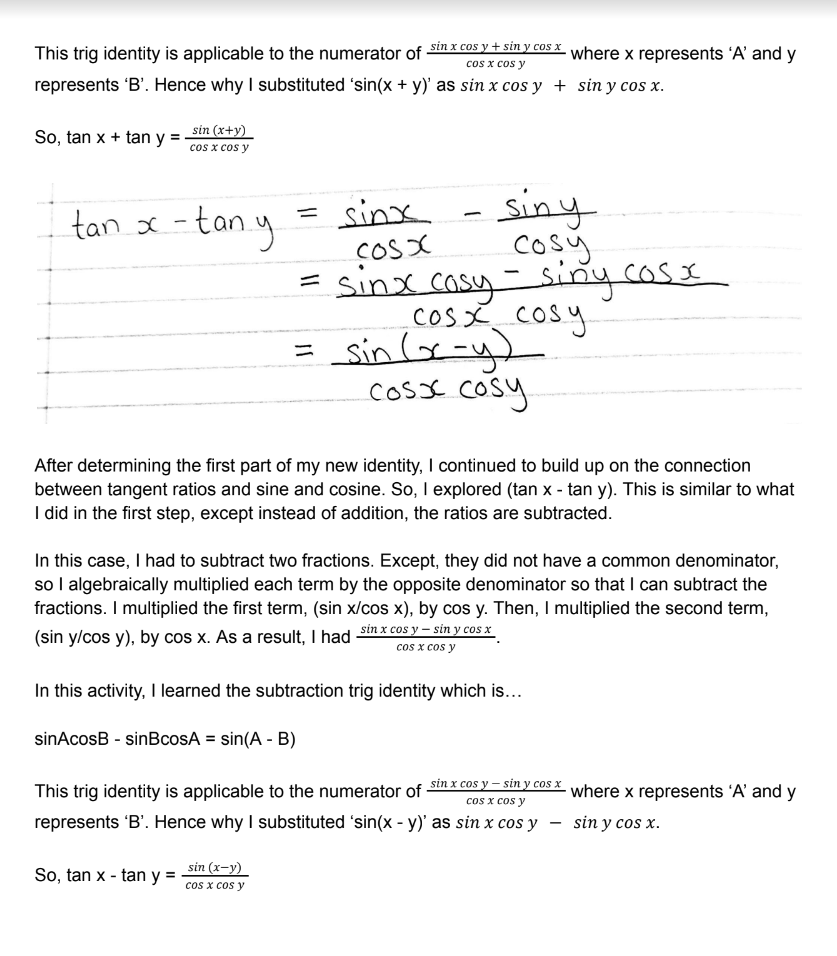 This trig identity is applicable to the numerator of (sin x cos y + sin y cos x)/(cos x cos y) where x represents ‘A’ and y
represents ‘B’. Hence why I substituted ‘sin(x + y)’ as sin x cos y + sin y cos x.
So, tan x + tan y = sin (x+y)/(cos x cos y)
tan x - tan y = sinx/cosx - siny/cosy
= (sinx cosy - siny cosx)/(cosx cosy)
= sin(x-y)/(cosx cosy)
After determining the first part of my new identity, I continued to build up on the connection
between tangent ratios and sine and cosine. So, I explored (tan x - tan y). This is similar to what
I did in the first step, except instead of addition, the ratios are subtracted.
In this case, I had to subtract two fractions. Except, they did not have a common denominator,
so I algebraically multiplied each term by the opposite denominator so that I can subtract the
fractions. I multiplied the first term, (sin x/cos x), by cos y. Then, I multiplied the second term,
(sin y/cos y), by cos x. As a result, I had (sin x cos y − sin y cos x)/(cos x cos y).
In this activity, I learned the subtraction trig identity which is…
sinAcosB - sinBcosA = sin(A - B)
This trig identity is applicable to the numerator of (sin x cos y − sin y cos x)/(cos x cos y) where x represents ‘A’ and y
represents ‘B’. Hence why I substituted ‘sin(x - y)’ as sin x cos y − sin y cos x.
So, tan x - tan y = sin (x−y)/(cos x cos y)